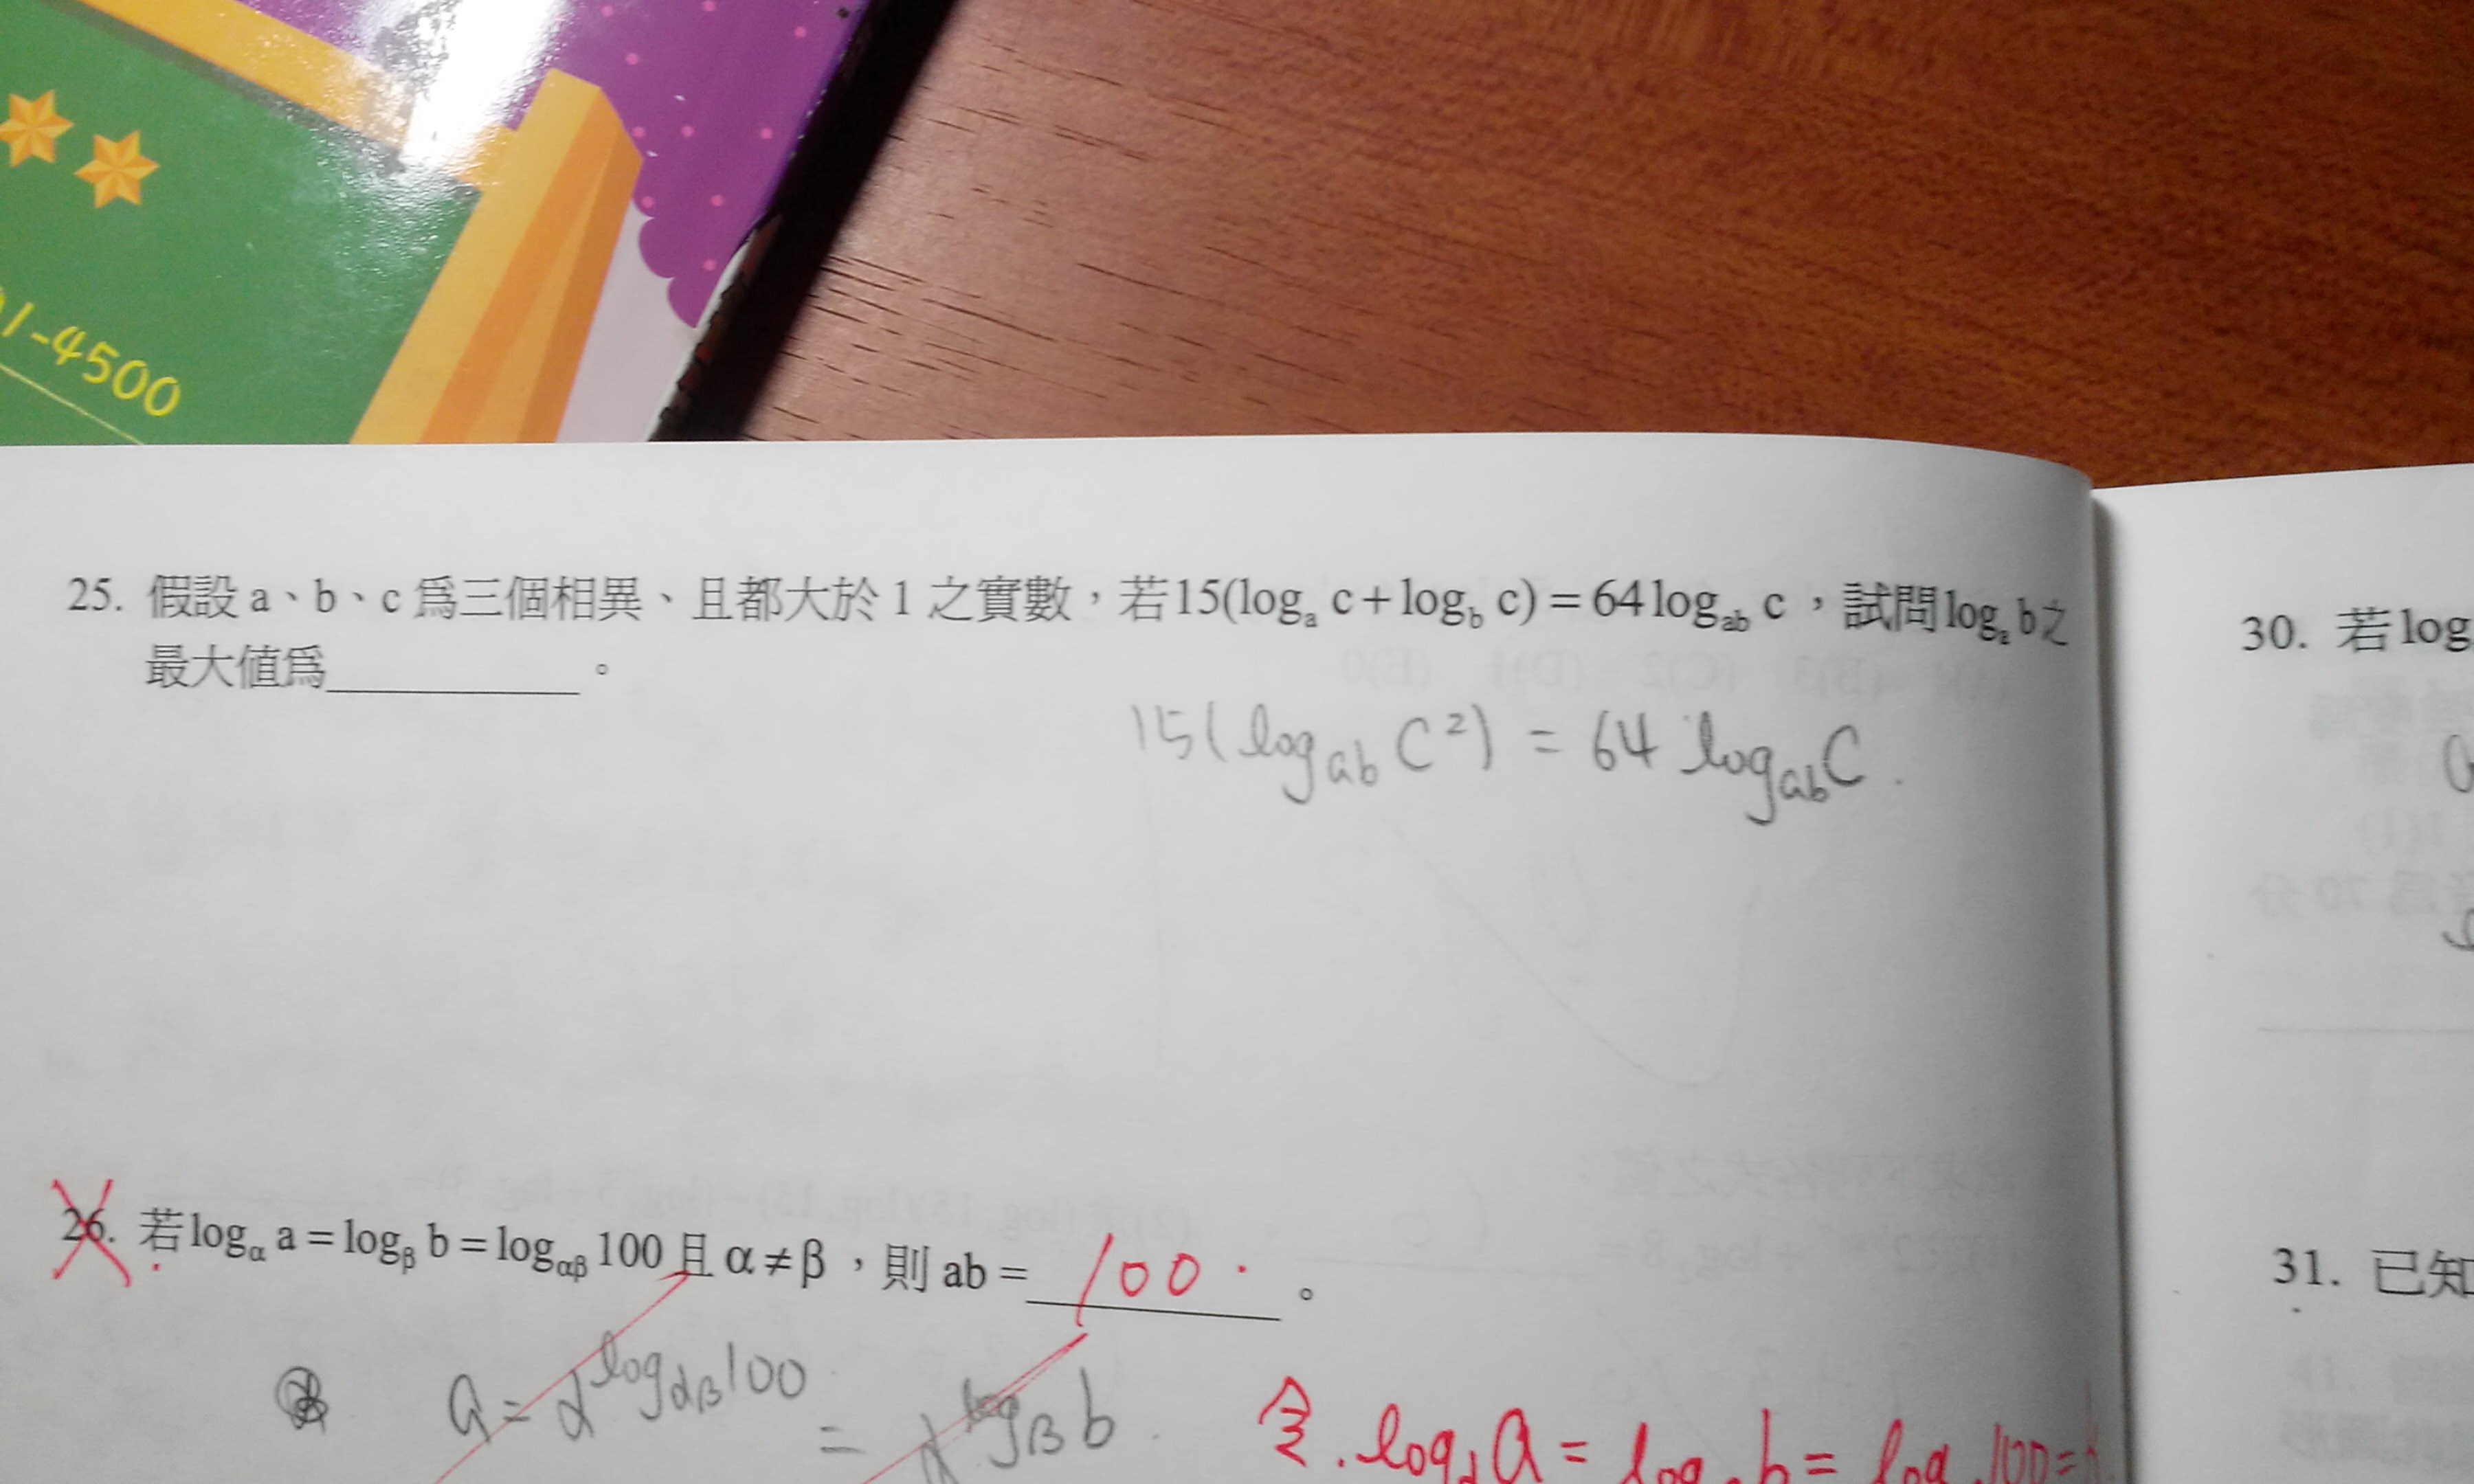 1-4500
25. 假設 a、b、c 為三個相異、且都大於 1 之實數,若15(logₐ c+log_b c)=64log_ab c ,試問logₐ b之
最大值為__________。
15(log_ab C²) = 64 log_ab C.
26. 若log_α a=log_β b=log_αβ 100 且 α≠β ,則 ab=100.。
a = α^log_αβ 100 = α^log_β b.
令.log_α a = log b = log 100 =
30. 若log
31. 已知